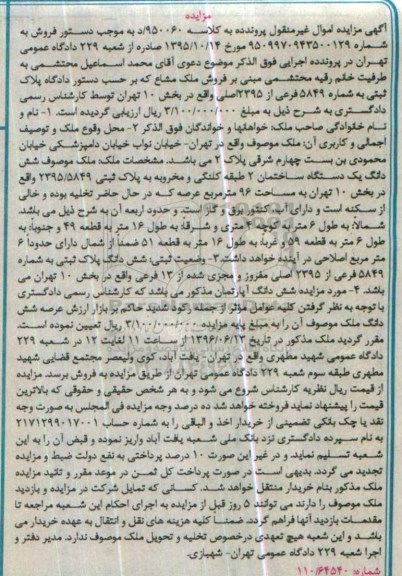 مزایده
آگهی مزایده اموال غیرمنقول پرونده به کلاسه ۹۵۰۰۶۰/د به موجب دستور فروش به
شماره ۹۵۰۹۹۷۰۹۴۳۵۰۰۱۲۹ مورخ ۱۳۹۵/۱۰/۱۴ صادره از شعبه ۲۲۹ دادگاه عمومی
تهران در پرونده اجرایی فوق الذکر موضوع دعوی آقای محمد اسماعیل محتشمی به
طرفیت خانم رقیه محتشمی مبنی بر فروش ملک مشاع که بر حسب دستور دادگاه پلاک
ثبتی به شماره ۵۸۴۹ فرعی از ۲۳۹۵ اصلی واقع در بخش ۱۰ تهران توسط کارشناس رسمی
دادگستری به شرح ذیل به مبلغ ۳/۱۰۰/۰۰۰/۰۰۰ ریال ارزیابی گردیده است. ۱- نام و
نام خانوادگی صاحب ملک: خواهانها و خواندگان فوق الذکر ۲- محل وقوع ملک و توصیف
اجمالی و کاربری آن: ملک موصوف واقع در تهران- خیابان نواب خیابان دامپزشکی خیابان
محمودی بن بست چهارم شرقی پلاک ۲ می باشد. مشخصات ملک: ملک موصوف شش
دانگ یک دستگاه ساختمان ۲ طبقه کلنگی و مخروبه به پلاک ثبتی ۲۳۹۵/۵۸۴۹ واقع
در بخش ۱۰ تهران به مساحت ۹۶ مترمربع عرصه که در حال حاضر تخلیه بوده و خالی
از سکنه است و دارای آب، کنتور برق و گاز است. و حدود اربعه آن به شرح ذیل می باشد.
شمالاً: به طول ۶ متر به کوچه ۴ متری و شرقاً: به طول ۱۶ متر به قطعه ۴۹ و جنوباً: به
طول ۶ متر به قطعه ۵۹ و غرباً: به طول ۱۶ متر به قطعه ۵۱ ضمناً از شمال دارای حدوداً ۶
متر مربع اصلاحی در آینده خواهد داشت. ۳- وضعیت ثبتی: شش دانگ پلاک ثبتی به شماره
۵۸۴۹ فرعی از ۲۳۹۵ اصلی مفروز و مجزی شده از ۱۳ فرعی واقع در بخش ۱۰ تهران می
باشد. ۴- مورد مزایده شش دانگ آپارتمان مذکور می باشد که کارشناس رسمی دادگستری
با توجه به نظر گرفتن کلیه عوامل مؤثر از جمله رکود شدید حاکم بر بازار ارزش عرصه شش
دانگ ملک موصوف آن را به مبلغ پایه مزایده ۳/۱۰۰/۰۰۰/۰۰۰ ریال تعیین نموده است.
مقرر گردید ملک مذکور در تاریخ ۱۳۹۶/۰۶/۱۳ از ساعت ۱۱ لغایت ۱۲ در شعبه ۲۲۹
دادگاه عمومی شهید مطهری واقع در تهران - یافت آباد، کوی ولیعصر مجتمع قضایی شهید
مطهری طبقه سوم شعبه ۲۲۹ دادگاه عمومی تهران از طریق مزایده به فروش برسد. مزایده
از قیمت ریال نظریه کارشناس شروع می شود و به هر شخص حقیقی و حقوقی که بالاترین
قیمت را پیشنهاد نماید فروخته خواهد شد ده درصد وجه مزایده فی المجلس به صورت وجه
نقد یا چک بانکی تضمینی از خریدار اخذ و الباقی را به شماره حساب ۲۱۷۱۲۹۹۰۱۷۰۰۱
به نام سپرده دادگستری نزد بانک ملی شعبه یافت آباد واریز نموده و قبض آن را به این
شعبه تسلیم نماید. و در غیر این صورت ۱۰ درصد پرداختی به نفع دولت ضبط و مزایده
تجدید می گردد. بدیهی است در صورت پرداخت کل ثمن در موعد مقرر و تائید مزایده
ملک مذکور بنام خریدار منتقل خواهد شد. کسانی که تمایل شرکت در مزایده و بازدید
ملک موصوف را دارند می توانند ۵ روز قبل از مزایده به اجرای احکام این شعبه مراجعه تا
مقدمات بازدید آنها فراهم گردد. ضمناً کلیه هزینه های نقل و انتقال به عهده خریدار می
باشد و این شعبه هیچ تعهدی درخصوص تخلیه و تحویل ملک موصوف ندارد. مدیر دفتر و
اجرا شعبه ۲۲۹ دادگاه عمومی تهران- شهبازی.
شماره: ۱۱۰/۶۴۵۴۰